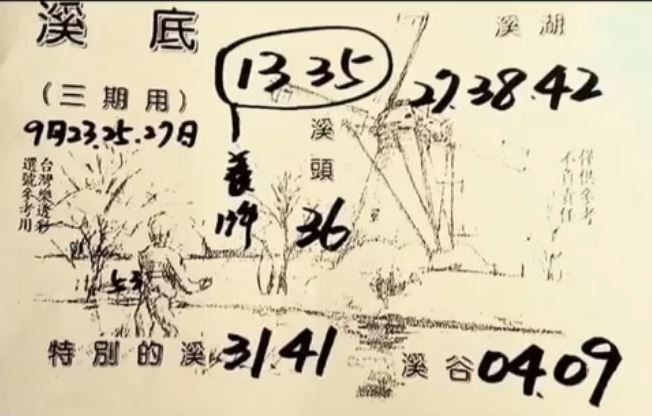 溪底
溪湖
13 35
27.38.42
(三期用)
9月23.25.27日
溪頭
36
台灣樂透彩
選號參考用
僅供參考
不負責任
53
特別的溪 31 41
溪谷 04.09